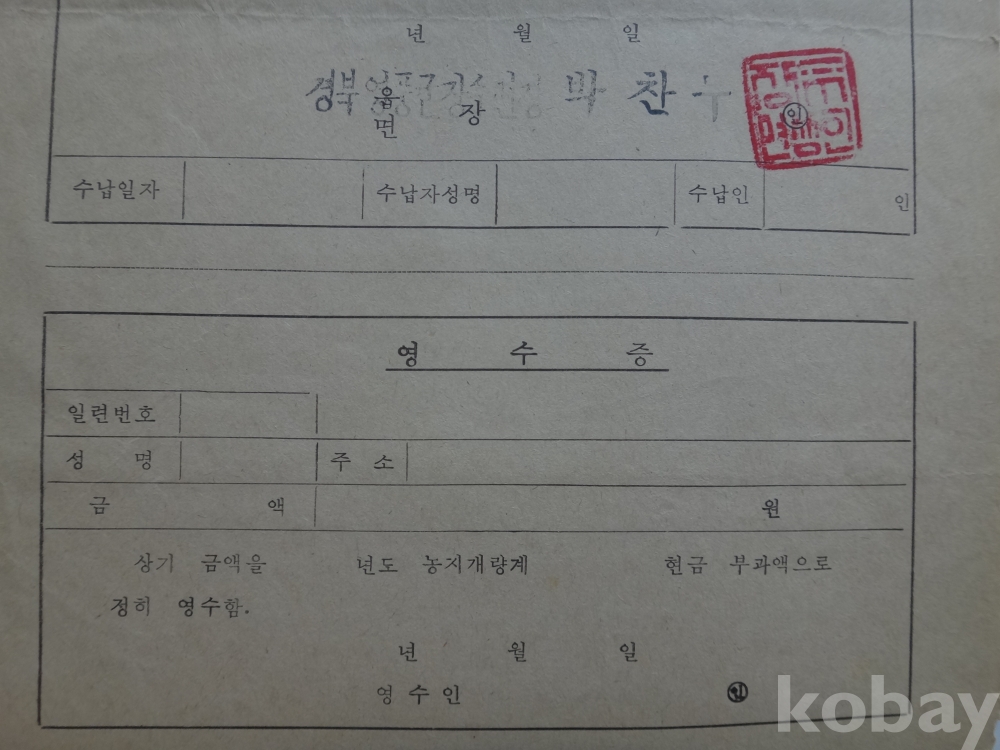 년 월 일
경북 박 찬
읍
면 장
인
수납일자 수납자성명 수납인 인
영 수 증
일련번호
성 명 주 소
금 액 원
상기 금액을 년도 농지개량계 현금 부과액으로
정히 영수함.
년 월 일
영 수 인 인
kobay